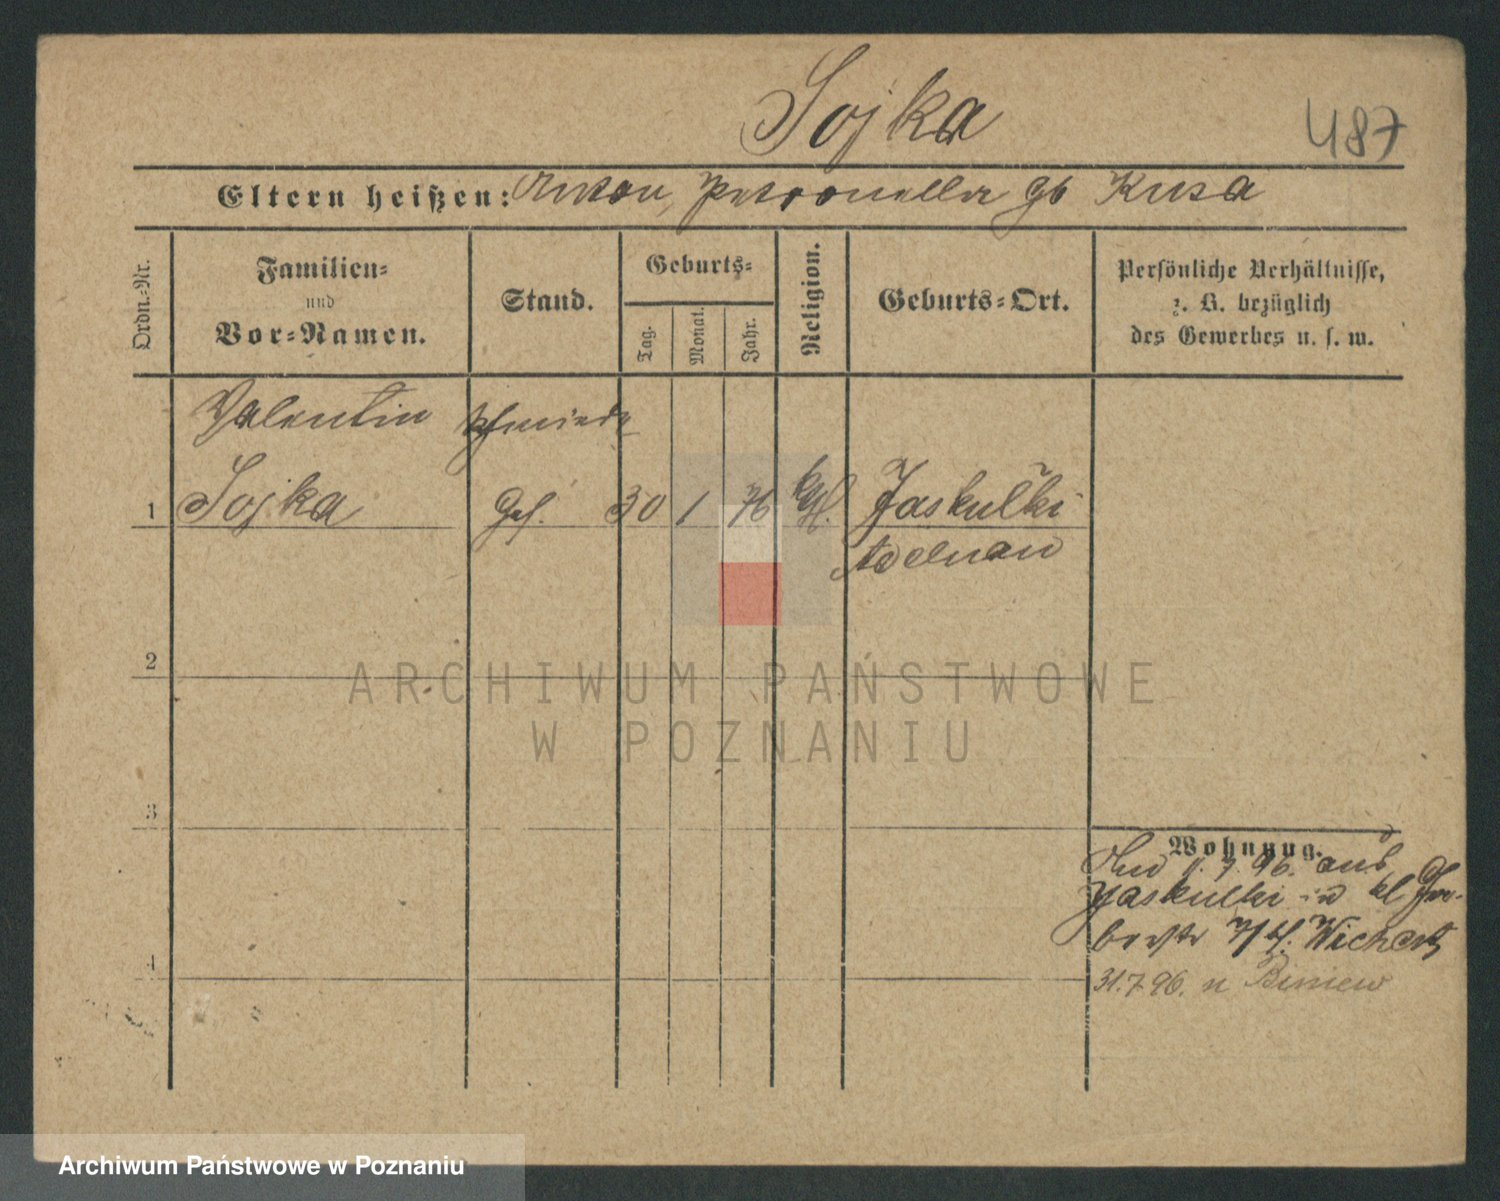 Sojka
487
Eltern heißen: Anton, Petronella gb Kusa
Ordn.-Nr.
Familien-
und
Vor-Namen.
Stand.
Geburts-
Tag.
Monat.
Jahr.
Religion.
Geburts-Ort.
Persönliche Verhältnisse,
z. B. bezüglich
des Gewerbes u. s. w.
Valentin Schmiede
1 Sojka Ges. 30 1 76 kth. Jaskulki
Adelnau
2
ARCHIWUM PAŃSTWOWE
W POZNANIU
3
Wohnung.
7. 96. aus
Jaskulki in kl Ger-
berstr 7/4. Wichert
4
31.7.96. n
Archiwum Państwowe w Poznaniu